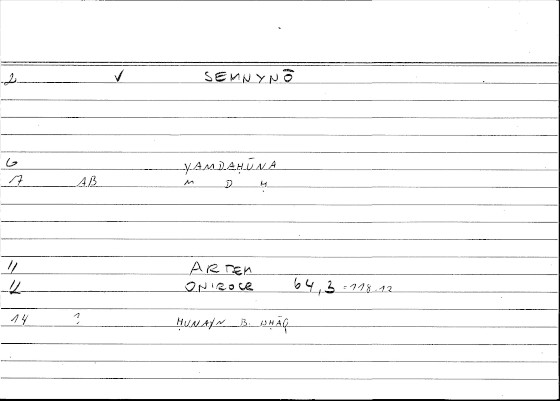 2 ✓ SEMNYNŌ
6 YAMDAḤŪNA
7 AB M D Ḥ
11 ARTEM
12 ONIROCR 64,3 = 118.12
14 ? ḤUNAYN B. ISḤĀQ